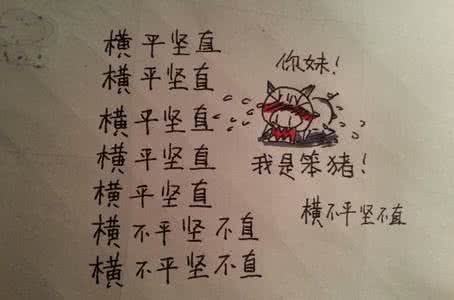 横平坚直
横平坚直
横平坚直
横平坚直
横平坚直
横不平坚不直
横不平坚不直
你妹!
我是笨猪!
横不平坚不直